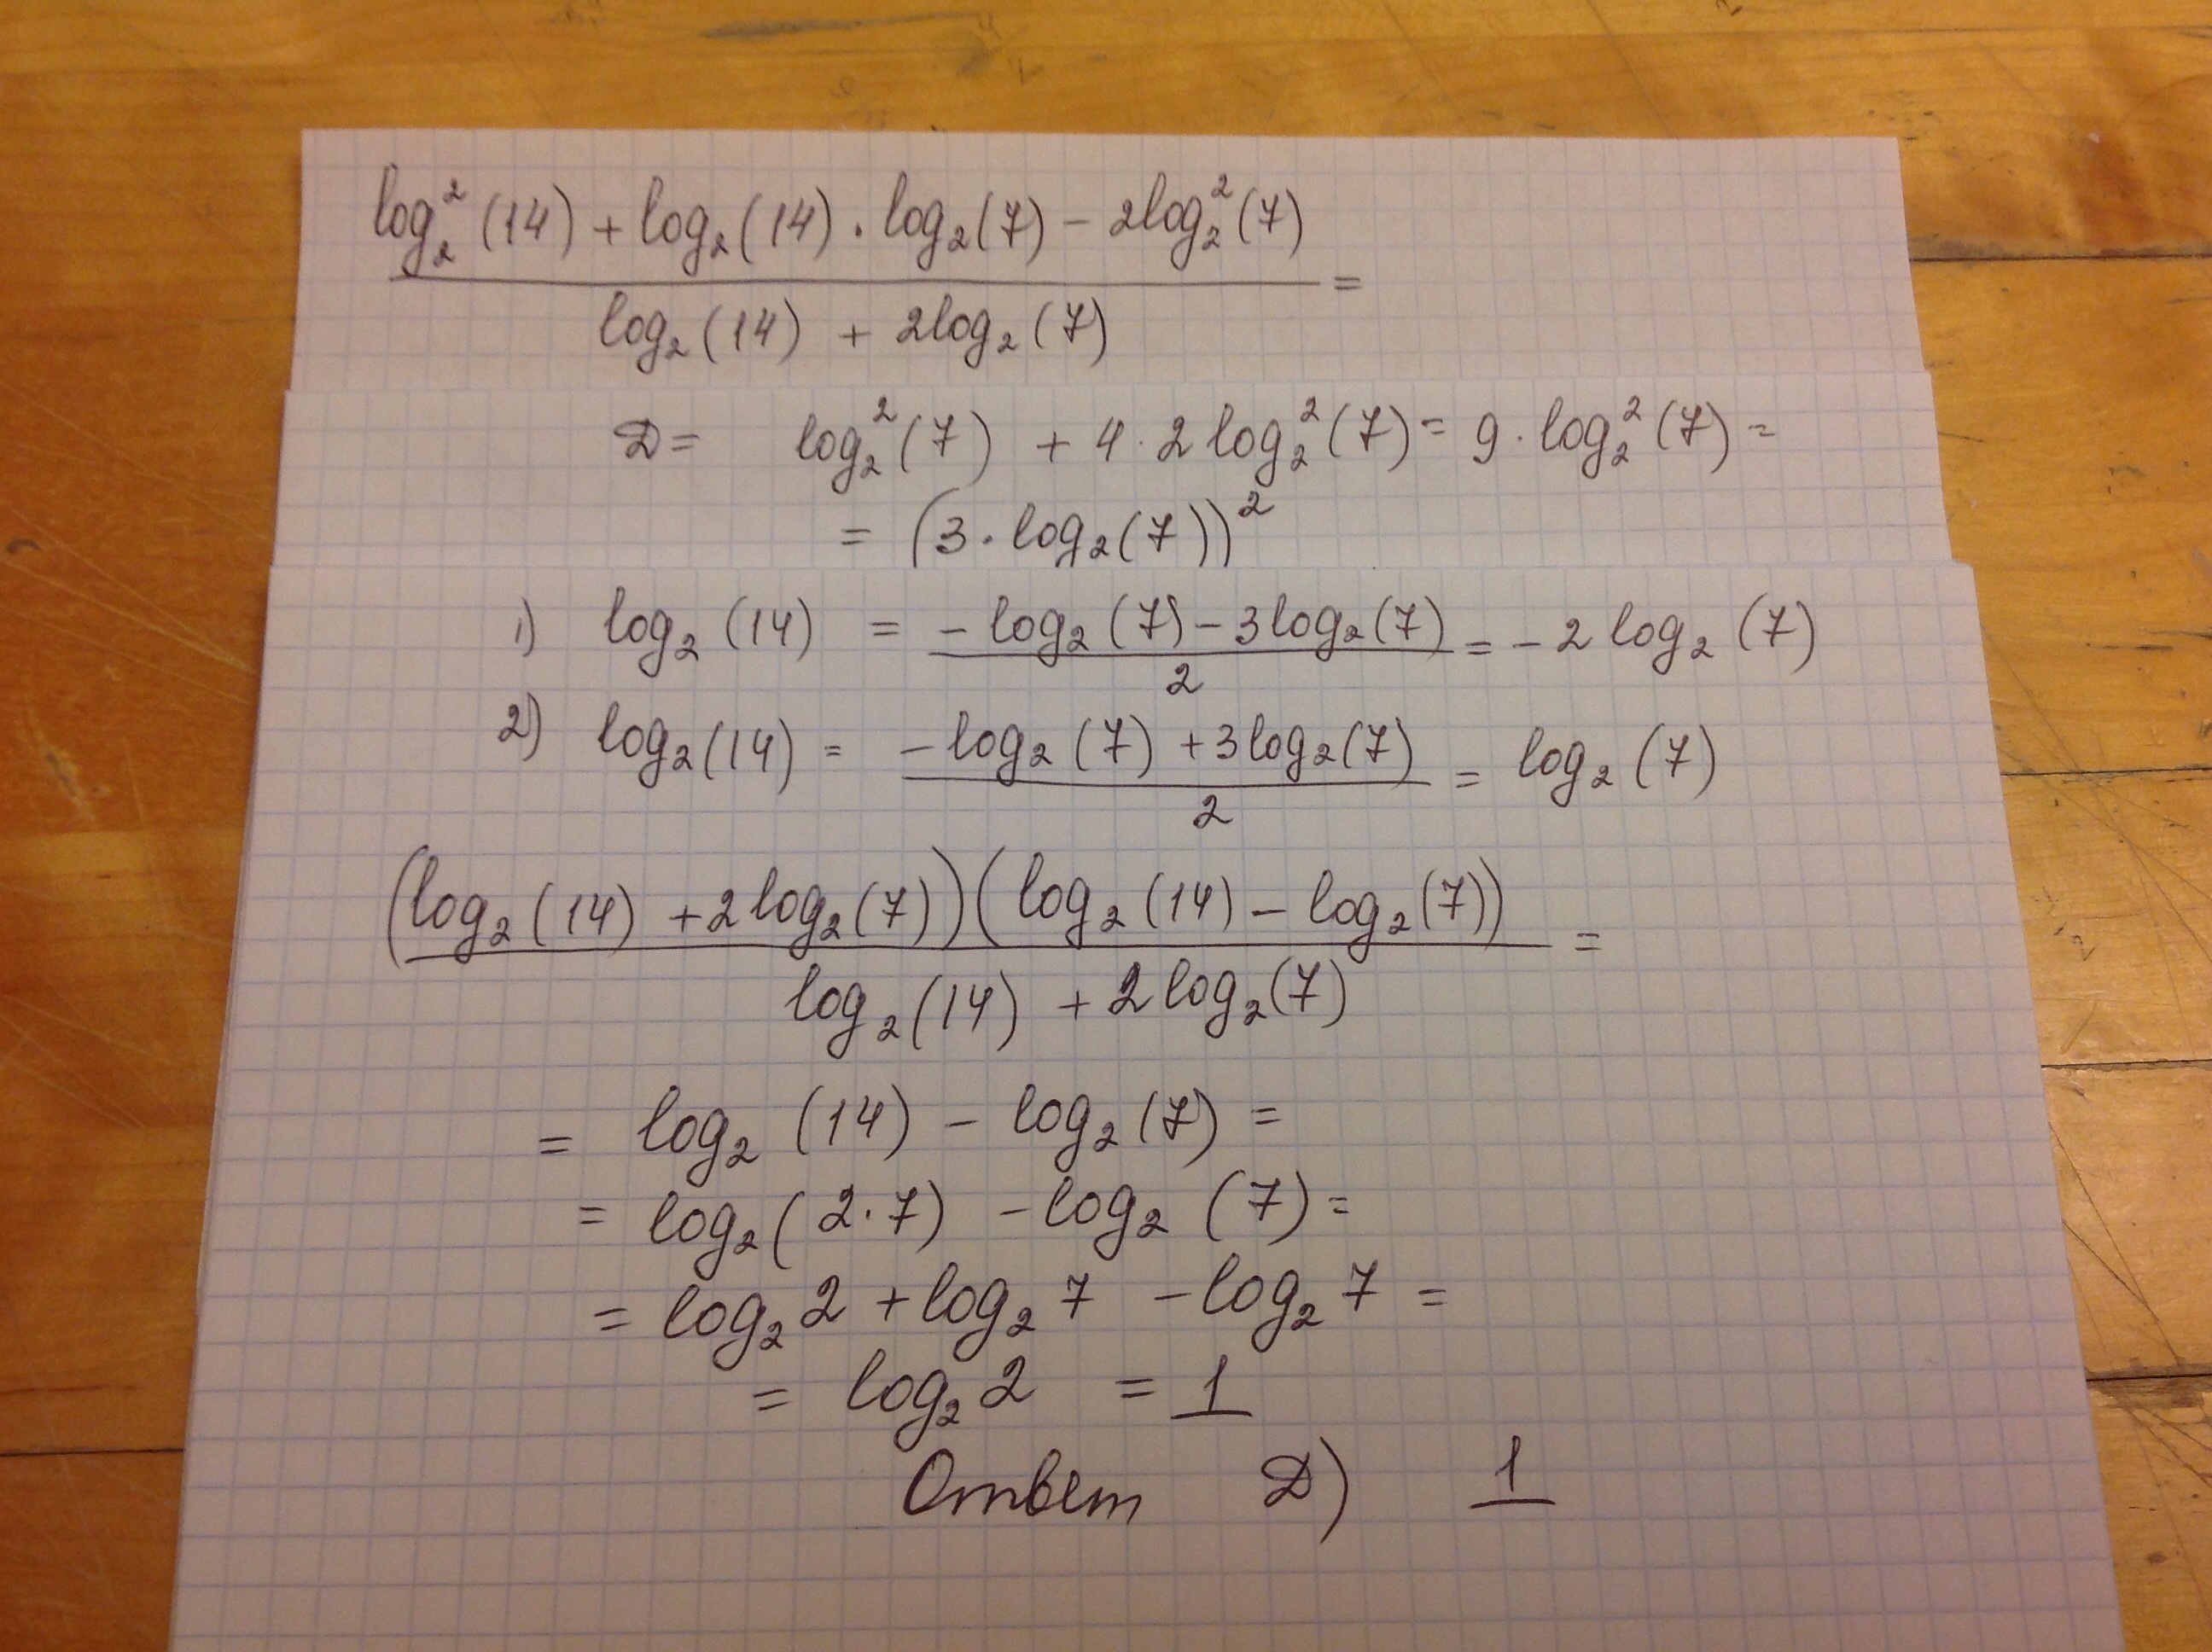 log₂²(14) + log₂(14) · log₂(7) − 2log₂²(7)
log₂(14) + 2log₂(7) =
D = log₂²(7) + 4 · 2 log₂²(7) = 9 · log₂²(7) =
= (3 · log₂(7))²
1) log₂(14) = −log₂(7) − 3log₂(7) / 2 = −2 log₂(7)
2) log₂(14) = −log₂(7) + 3log₂(7) / 2 = log₂(7)
(log₂(14) + 2log₂(7))(log₂(14) − log₂(7)) =
log₂(14) + 2log₂(7)
= log₂(14) − log₂(7) =
= log₂(2·7) − log₂(7) =
= log₂2 + log₂7 − log₂7 =
= log₂2 = 1
Ответ D) 1